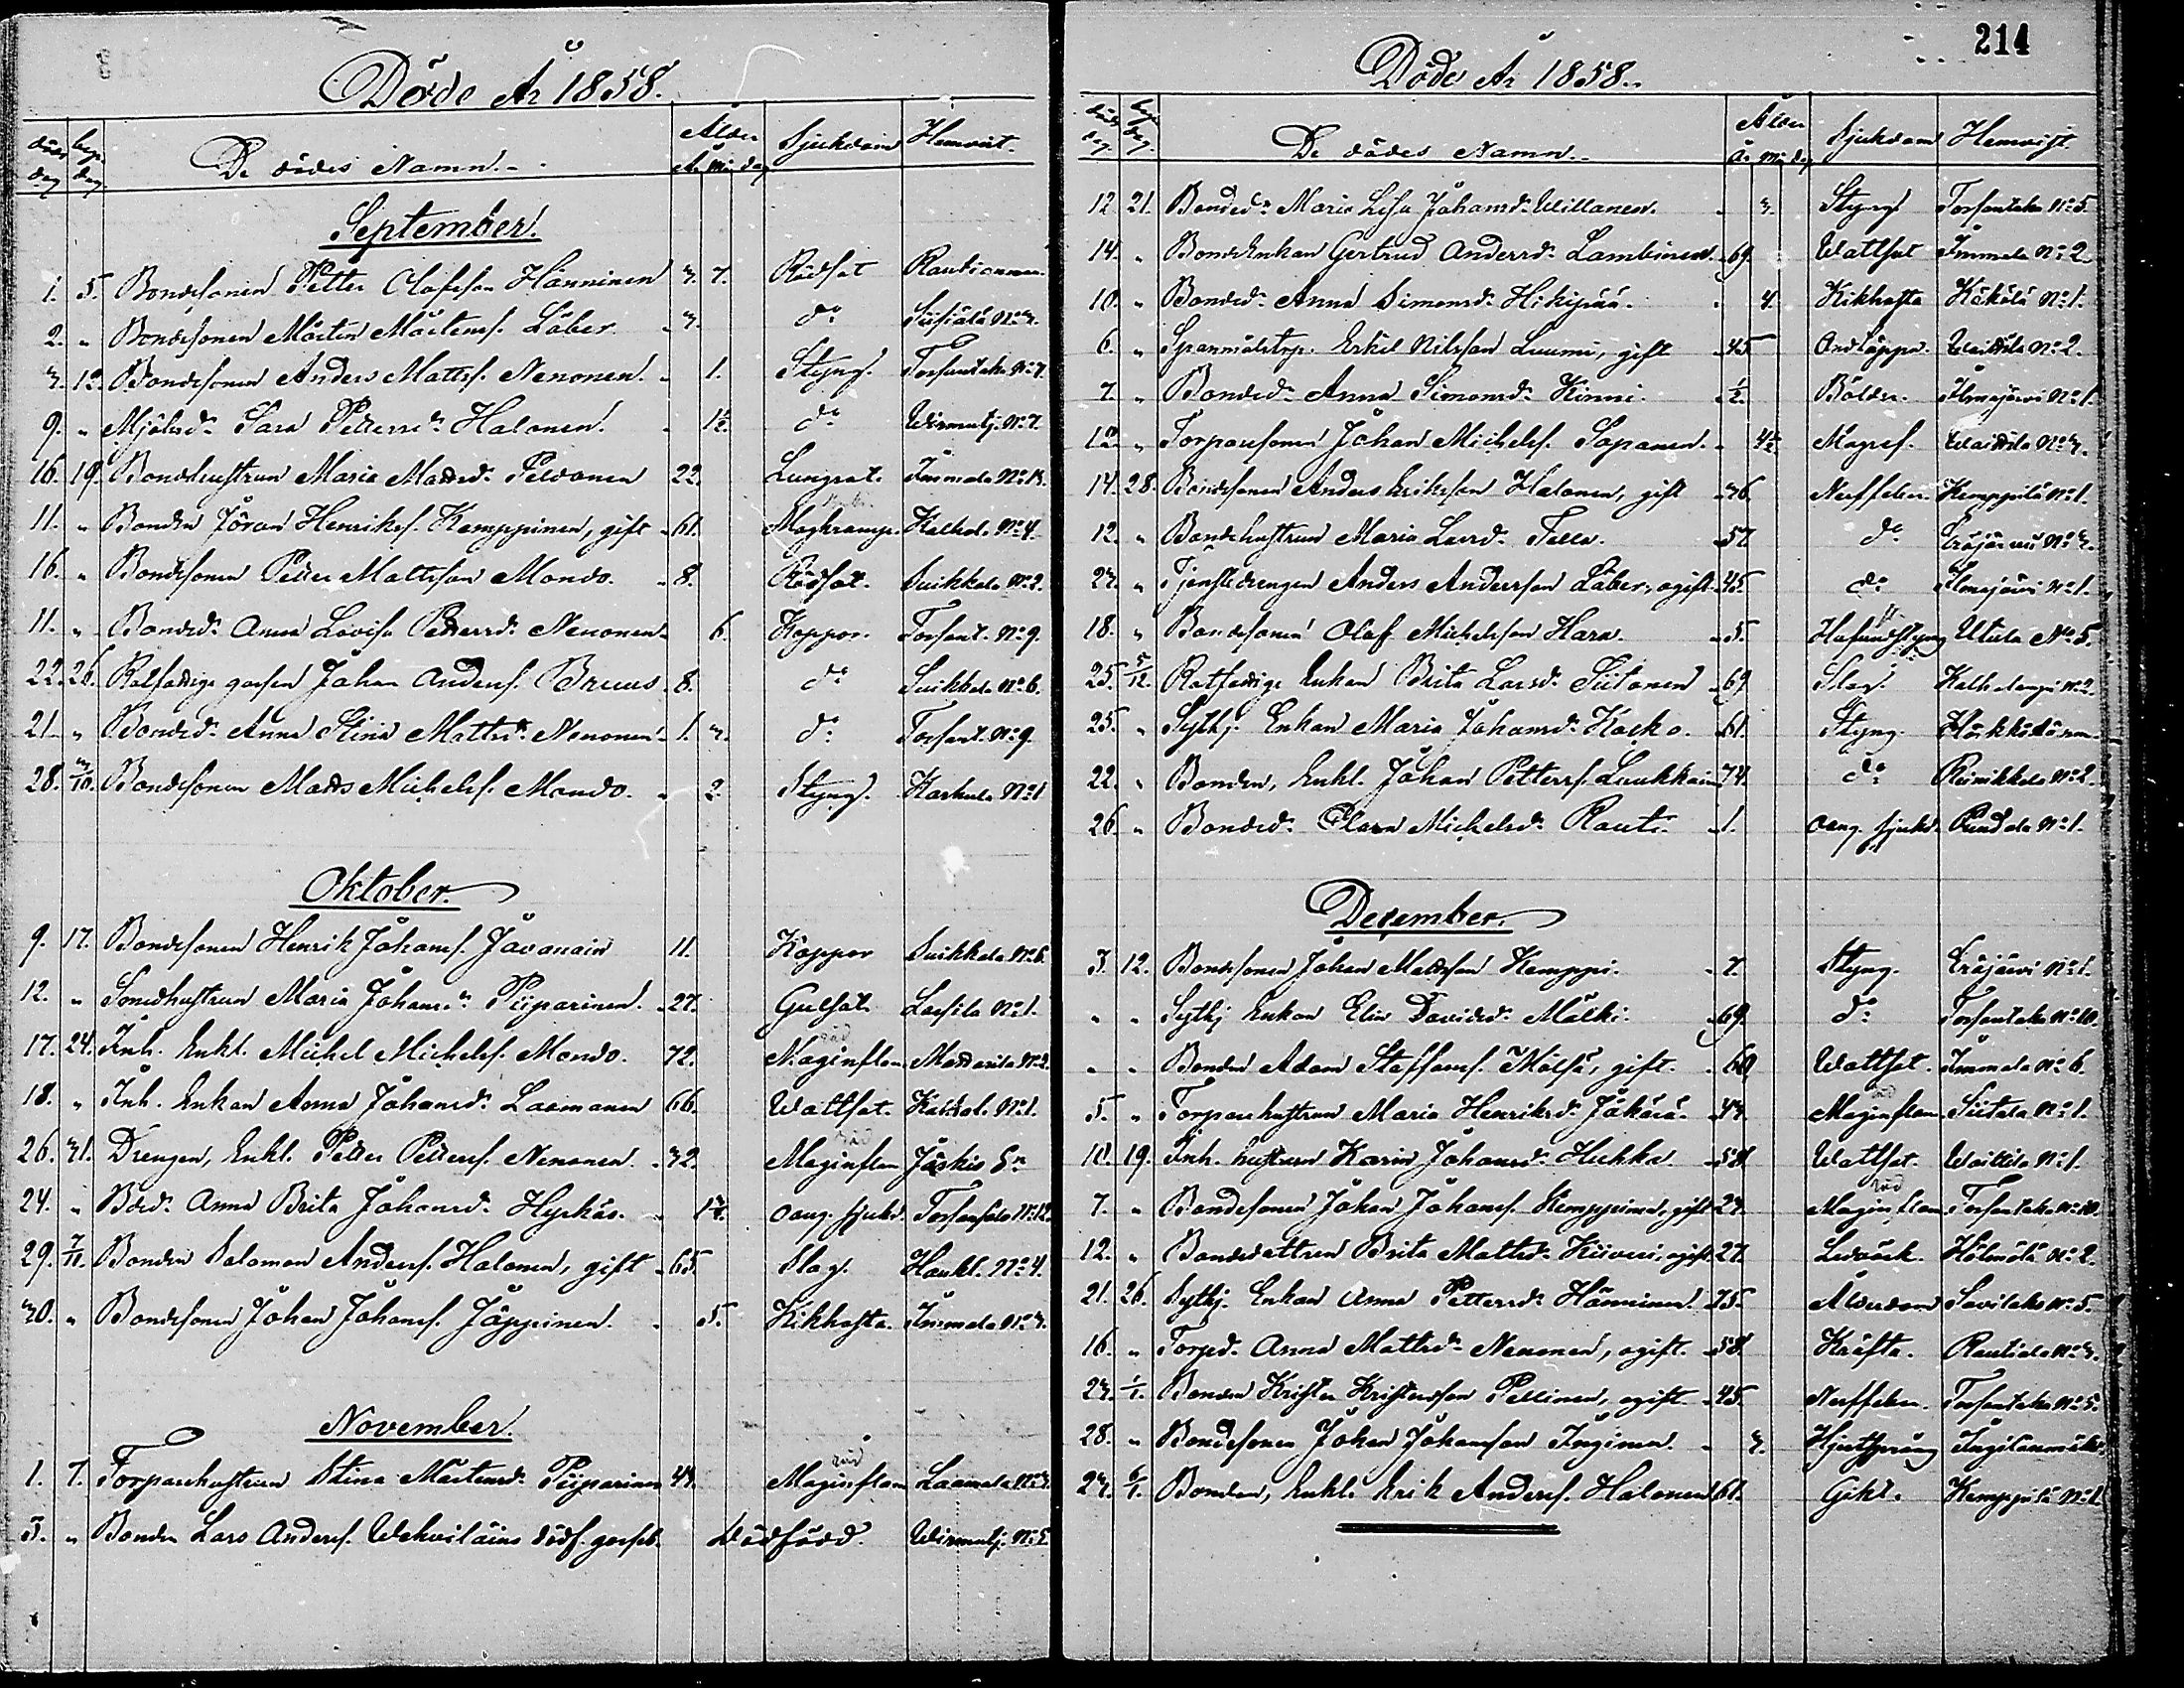 Döde År 1858.
döds dag begr. dag De dödes Namn. Ålder År Mån dag Sjukdom Hemvist.
September.
1. 5. Bondesonen Petter Olofsson Hänninen 3. 7. Rödsot
2. " Bondesonen Mårten Mårtenss. Läber 3. do
3. 12. Bondesonen Anders Mattss. Nenonen. 1. Styng. Torsantaka No 7.
9. " Sara Petersdr Halonen. 1½. do Wirmutj. No 7.
16. 19. Bondhustrun Maria Mattsdr Peldonen 22. Lungsot. Immola
11. " Bonden Jöran Henrikss. Kemppinen, gift 61. Magkramp. No 4.
16. " Bondesonen Petter Mattsson Mondo. 8. Rödsot. Suikkala No 2.
11. " Bonded. Anna Lovisa Pettersdr Nenonen 6. Koppor. Torsant. No 9.
22. 26. Rotfattige gossen Johan Anderss. Bruus 8. do Suikkala No 6.
21. " Bonded. Anna Stina Mattsdr Nenonen 1. 3. do Torsant. No 9.
28. 3/10. Bondesonen Matts Michelss. Mondo. 2. Styng. Karhula No 1
Oktober.
9. 17. Bondesonen Henrik Johanss. Javanain 11. Koppor Suikkala No 6.
12. " Sonehustrun Maria Johansdr Piiparinen. 27. Gulsot Lassila No 1.
17. 24. Inh. Enkl. Michel Michelss. Mondo. 72. Maginflam.
18. " Inh. Enkan Anna Johansdr Laamanen 66. Wattsot. No 1.
26. 31. Drengen, Enkl. Petter Petterss. Nenonen. 32. Maginflam Jäskis
24. " Bded. Anna Brita Johansdr Hyrkäs. oang. sjukd.
29. 7/11. Bonden Salomon Anderss. Halonen, gift 65. Slag. Haukl. No 4.
30. " Bondesonen Johan Johanss. Jäppinen. 5. Kikhosta. Immola No 3.
November.
1. 7. Torparehustrun Stina Mårtensdr Piiparinen 43. Maginflam
5. " Bonden Lars Anderss. Wehviläins dödf. gosseb. Dödfödd. Wirmutj.
214
Döde År 1858.
döds dag begr. dag De dödes Namn. Ålder År Mån dag Sjukdom Hemvist.
12 21. Bonded. Maria Lisa Johansdr Willanen. 3. Styng Torsantaka No 5.
14. " Bondenkan Gertrud Andersdr Lambinen. 69. Wattsot Immola No 2.
10. " Bonded. Anna Simonsdr Hikipää. 4. Kikhosta Kökölä No 1.
6. " Erkel Nilsson Luumi, gift 45. Andtäppa. Waittila No 2.
7. " Bonded. Anna Simonsdr Kinni. ½. Bölder. Ilmajärvi No 1.
" Torparesonen Johan Michelss. Sapanen. 4½ Magref. Waittila No 3.
14. 28. Bondesonen Anders Eriksson Halonen, gift 36. Nerffeber. Kemppilä No 1.
12. " Bondehustrun Maria Larsdr Talla. 57. do
23. " Tjenstedrengen Anders Andersson Läber, ogift 45. do Ilmajärvi No 1.
18. " Bondesonen Olof Michelsson Hara. 5. Utula No 5.
25. 5/12. Rotfattige Enkan Brita Larsdr Siitonen 69. Slag.
25. " Sythj. Enkan Maria Johansdr Kosko. 61. Styng.
22. " Bonden, Enkl. Johan Petterss. Luukkain 74. do Räikkölä No 2.
26. " Bonded. Clara Michelsdr Rauti. 1. oang. sjukd. Pundala No 1.
December.
5. 12. Bondesonen Johan Mattsson Kemppi. 7. Styng. Eräjärvi No 1.
" " Sythj Enkan Elin Davidsdr Mälki. 69. do Torsantaka No 10.
" " Bonden Adam Staffanss. Mälsä, gift. 60. Wattsot. Immola No 6.
5. " Torparehustrun Maria Henriksdr Jäkärä. 43. Maginflam. Siitala No 1.
10. 19. Inh. hustrun Karin Johansdr Huhka. 58. Wattsot. Waittila No 1.
7. " Bondesonen Johan Johanss. Kemppinen, gift 23. Maginflam Torsantaka No 10.
12. " Bondedottren Brita Mattsdr Kiiveri, ogift 27. Ledvärk. No 2.
21. 26. Sythj. Enkan Anna Pettersdr Hänninen. 75. Ålderdom
16. " Torped. Anna Mattsdr Nenonen, ogift. 58. Kräfta. Rautiala No 3.
23. 1/1. Bonden Krister Kristersson Pellinen, ogift 45. Nerffeber. Torsantaka No 5.
28. " Bondesonen Johan Johansson Inginen. 3. Hjertsprång
23. 6/1. Bonden, Enkl. Erik Anderss. Halonen 61. Gikt. Kemppilä No 1.